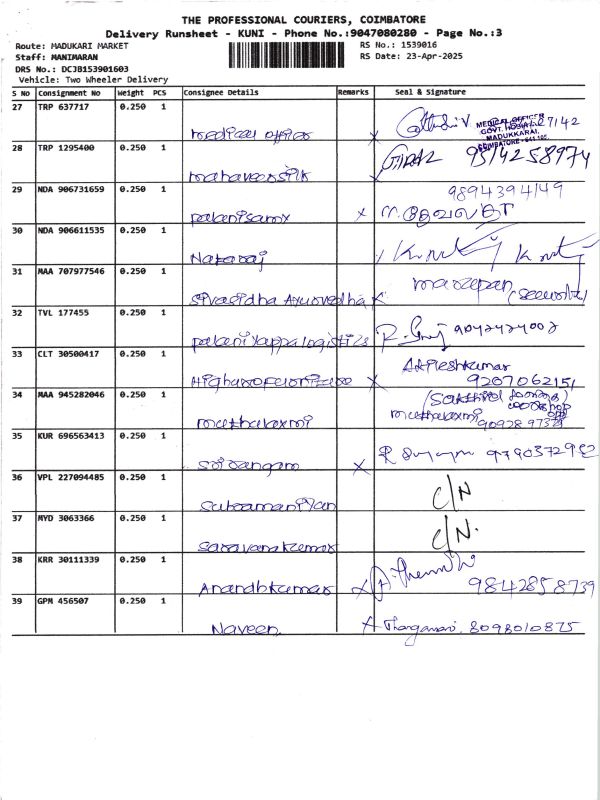 THE PROFESSIONAL COURIERS, COIMBATORE
Delivery Runsheet - KUNI - Phone No.:9047080280 - Page No.:3
Route: MADUKARI MARKET
RS No.: 1539016
Staff: MANIMARAN
RS Date: 23-Apr-2025
DRS No.: DCJB153901603
Vehicle: Two Wheeler Delivery
S No Consignment No Weight PCS Consignee Details Remarks Seal & Signature
27 TRP 637717 0.250 1
medical officer
MEDICAL OFFICER
GOVT. HOSPITAL
MADUKKARAI,
COIMBATORE - 641 105.
28 TRP 1295400 0.250 1
mahaveersilk
29 NDA 906731659 0.250 1
9894394149
palanisamy x
30 NDA 906611535 0.250 1
Nataraj
31 MAA 707977546 0.250 1
sivasidha Ayurvedha
32 TVL 177455 0.250 1
palaniyappa logistics
33 CLT 30500417 0.250 1
Akileshkumar
x 9207062151
34 MAA 945282046 0.250 1
muthulaxmi
muthulaxmi
35 KUR 696563413 0.250 1
srirangam x
36 VPL 227094485 0.250 1
C/N
subramaniyan
37 MYD 3063366 0.250 1
C/N.
saravanakumar
38 KRR 30111339 0.250 1
Anandhkumar x 9842858739
39 GPM 456507 0.250 1
Naveen x Thangamani 8098010875